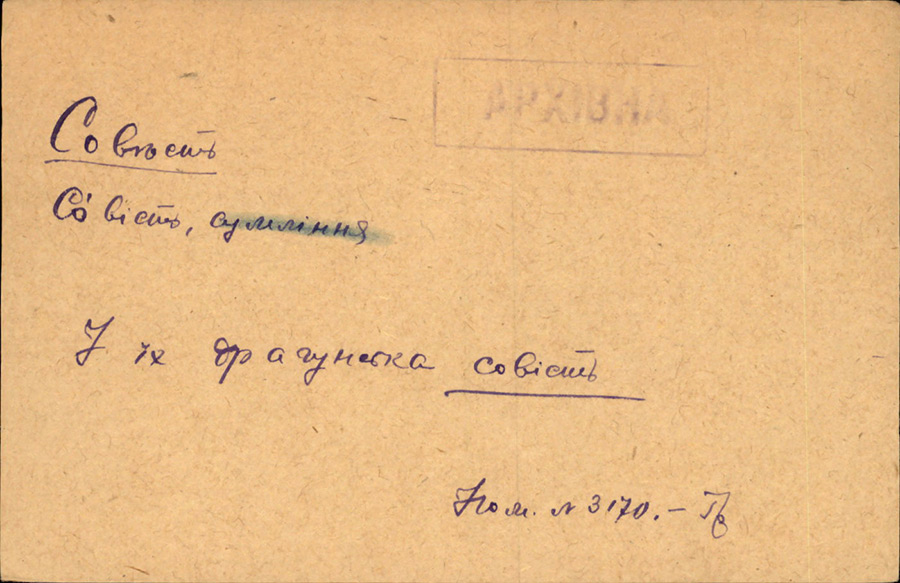 АРХІВНА
Совѣсть
Со́вість, сумління
У їх драгунська совість
Ном. № 3170. – Гр